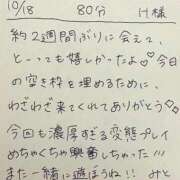 10/18 80分 H様
約2週間ぶりに会えて、
と〜っても嬉しかったよ♡今日
の空き枠を埋めるために、
わざわざ来てくれてありがとう♡
今回も濃厚すぎる変態プレイ
めちゃくちゃ興奮しちゃった!!!
また一緒に遊ぼうね!! みと